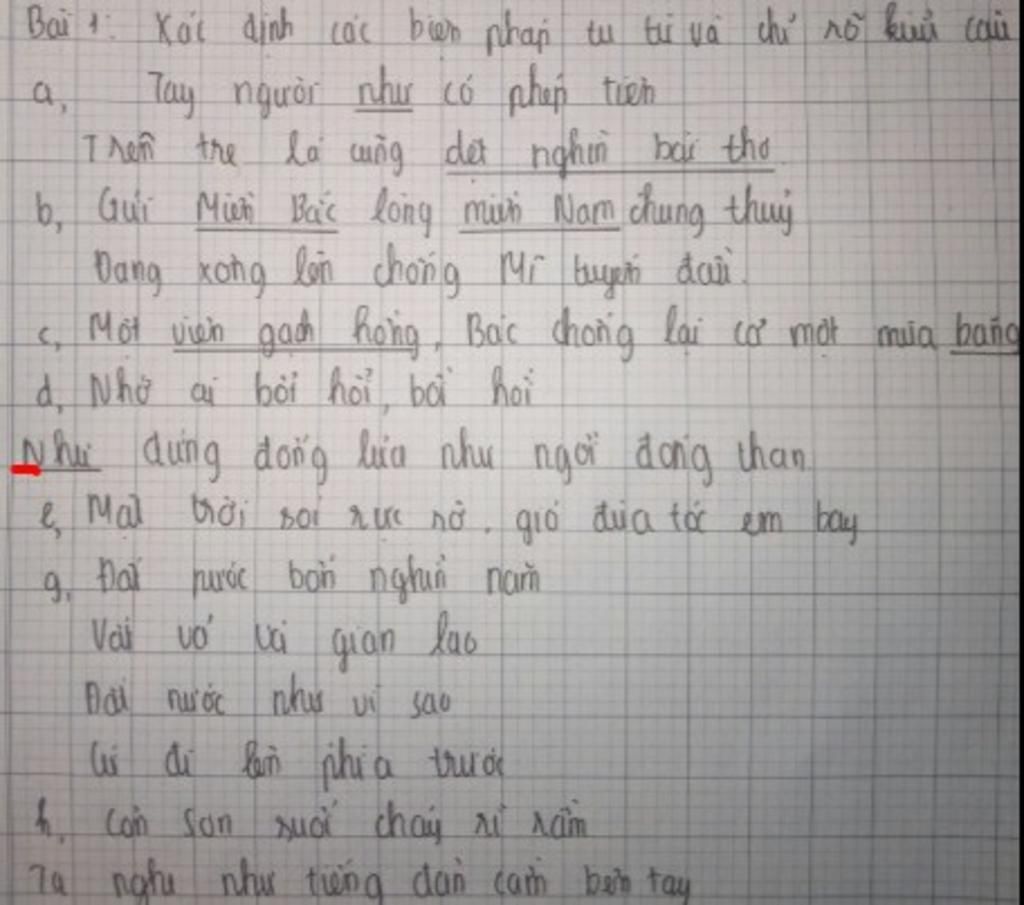 Bài 1: Xác định các biện pháp tu từ và chỉ rõ kiểu câu
a, Tay người như có phép tiên
Trên tre lá cũng dệt nghìn bài thơ
b, Gửi Miền Bắc lòng miền Nam chung thuỷ
Đang xông lên chống Mĩ tuyến đầu.
c, Một viên gạch hồng, Bác chống lại cả một mùa băng
d, Nhớ ai bồi hồi, bồi hồi
Như đứng đống lửa như ngồi đống than
e, Mặt trời soi rực rỡ. gió đùa tóc em bay
g, Đất nước bốn nghìn năm
Vất vả và gian lao
Đất nước như vì sao
Cứ đi lên phía trước
h, Côn Sơn suối chảy rì rầm
Ta nghe như tiếng đàn cầm bên tay